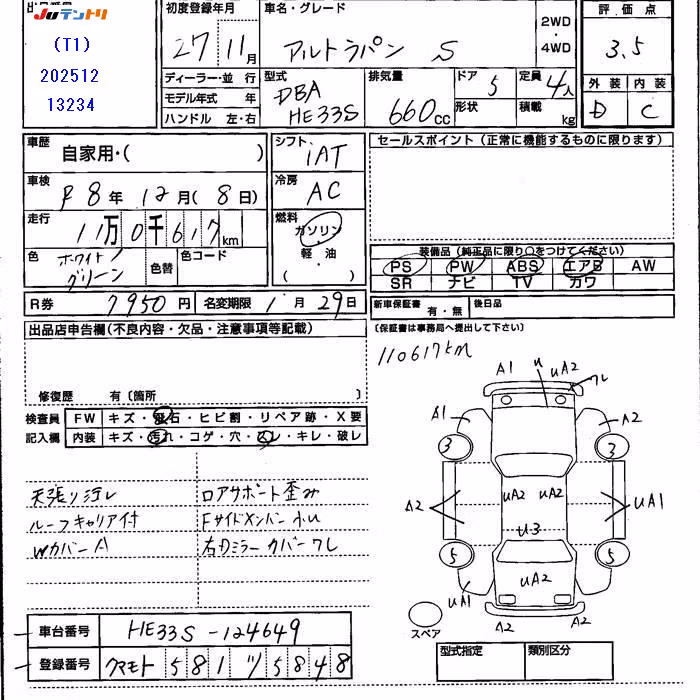 出品番号
JUテントリ
(T1)
202512
13234
初度登録年月
27年11月
車名・グレード
アルトラパン S
2WD
・
4WD
評価点
3.5
外装 内装
D C
ディーラー・並行
モデル年式 年
ハンドル 左・右
型式
DBA
HE33S
排気量
660cc
ドア 5
形状
定員 4人
積載 kg
車歴
自家用・( )
車検
R8年12月(8日)
走行
11万0千617km
色
ホワイト/
グリーン
色替
色コード
シフト
IAT
冷房
AC
燃料
ガソリン
・
軽・油
( )
セールスポイント(正常に機能するものに限ります)
装備品(純正品に限り○をつけてください)
PS PW ABS エアB AW
SR ナビ TV カワ
R券 7950円 名変期限 1月29日
新車保証書 有・無 後日品
(保証書は事務局へ提出して下さい)
出品店申告欄(不良内容・欠品・注意事項等記載)
修復歴 有〔箇所 〕
110617km
検査員
記入欄
FW キズ・飛石・ヒビ割・リペア跡・X要
内装 キズ・汚れ・コゲ・穴・スレ・キレ・破レ
天張り汚レ
ルーフキャリア付
Wカバー A1
ロアサポート歪み
Fサイドメンバー 小U
右Dミラーカバーワレ
A1 U UA2 ワレ
A1 A2
3 3
A2 UA2 UA2 UA1
U3
5 5
UA2
UA1
A2 A2
スペア
車台番号 HE33S-124649
登録番号 クマモト 581 ツ 5848
型式指定 類別区分